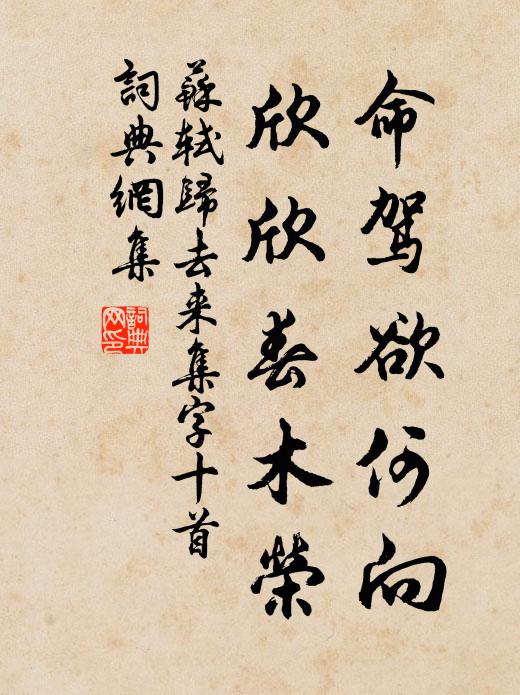 命駕欲何向
欣欣春木榮
蘇軾歸去来集字十首
詞典網集
詞典网印